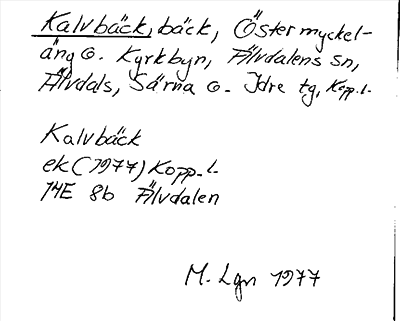 Kalvbäck, bäck, Östermyckel-
äng o. Kyrkbyn, Älvdalens sn,
Älvdals, Särna o. Idre tg, Kopp.l.
Kalvbäck
ek (1977) Kopp.l.
14E 8b Älvdalen
M. Lgn 1977